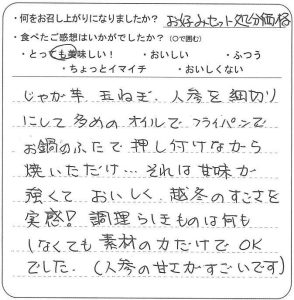 ・何をお召し上がりになりましたか？ お好みセット処分価格
・食べたご感想はいかがでしたか？（○で囲む）
・とっても美味しい！ ・おいしい ・ふつう
・ちょっとイマイチ ・おいしくない
じゃが芋 玉ねぎ、人参を細切り
にして多めのオイルで フライパンで
お鍋のふたで押し付けながら
焼いただけ… それは甘味が
強くて おいしく、越冬のすごさを
実感！ 調理らしきものは何も
しなくても 素材の力だけで OK
でした。（人参の甘さがすごいです）